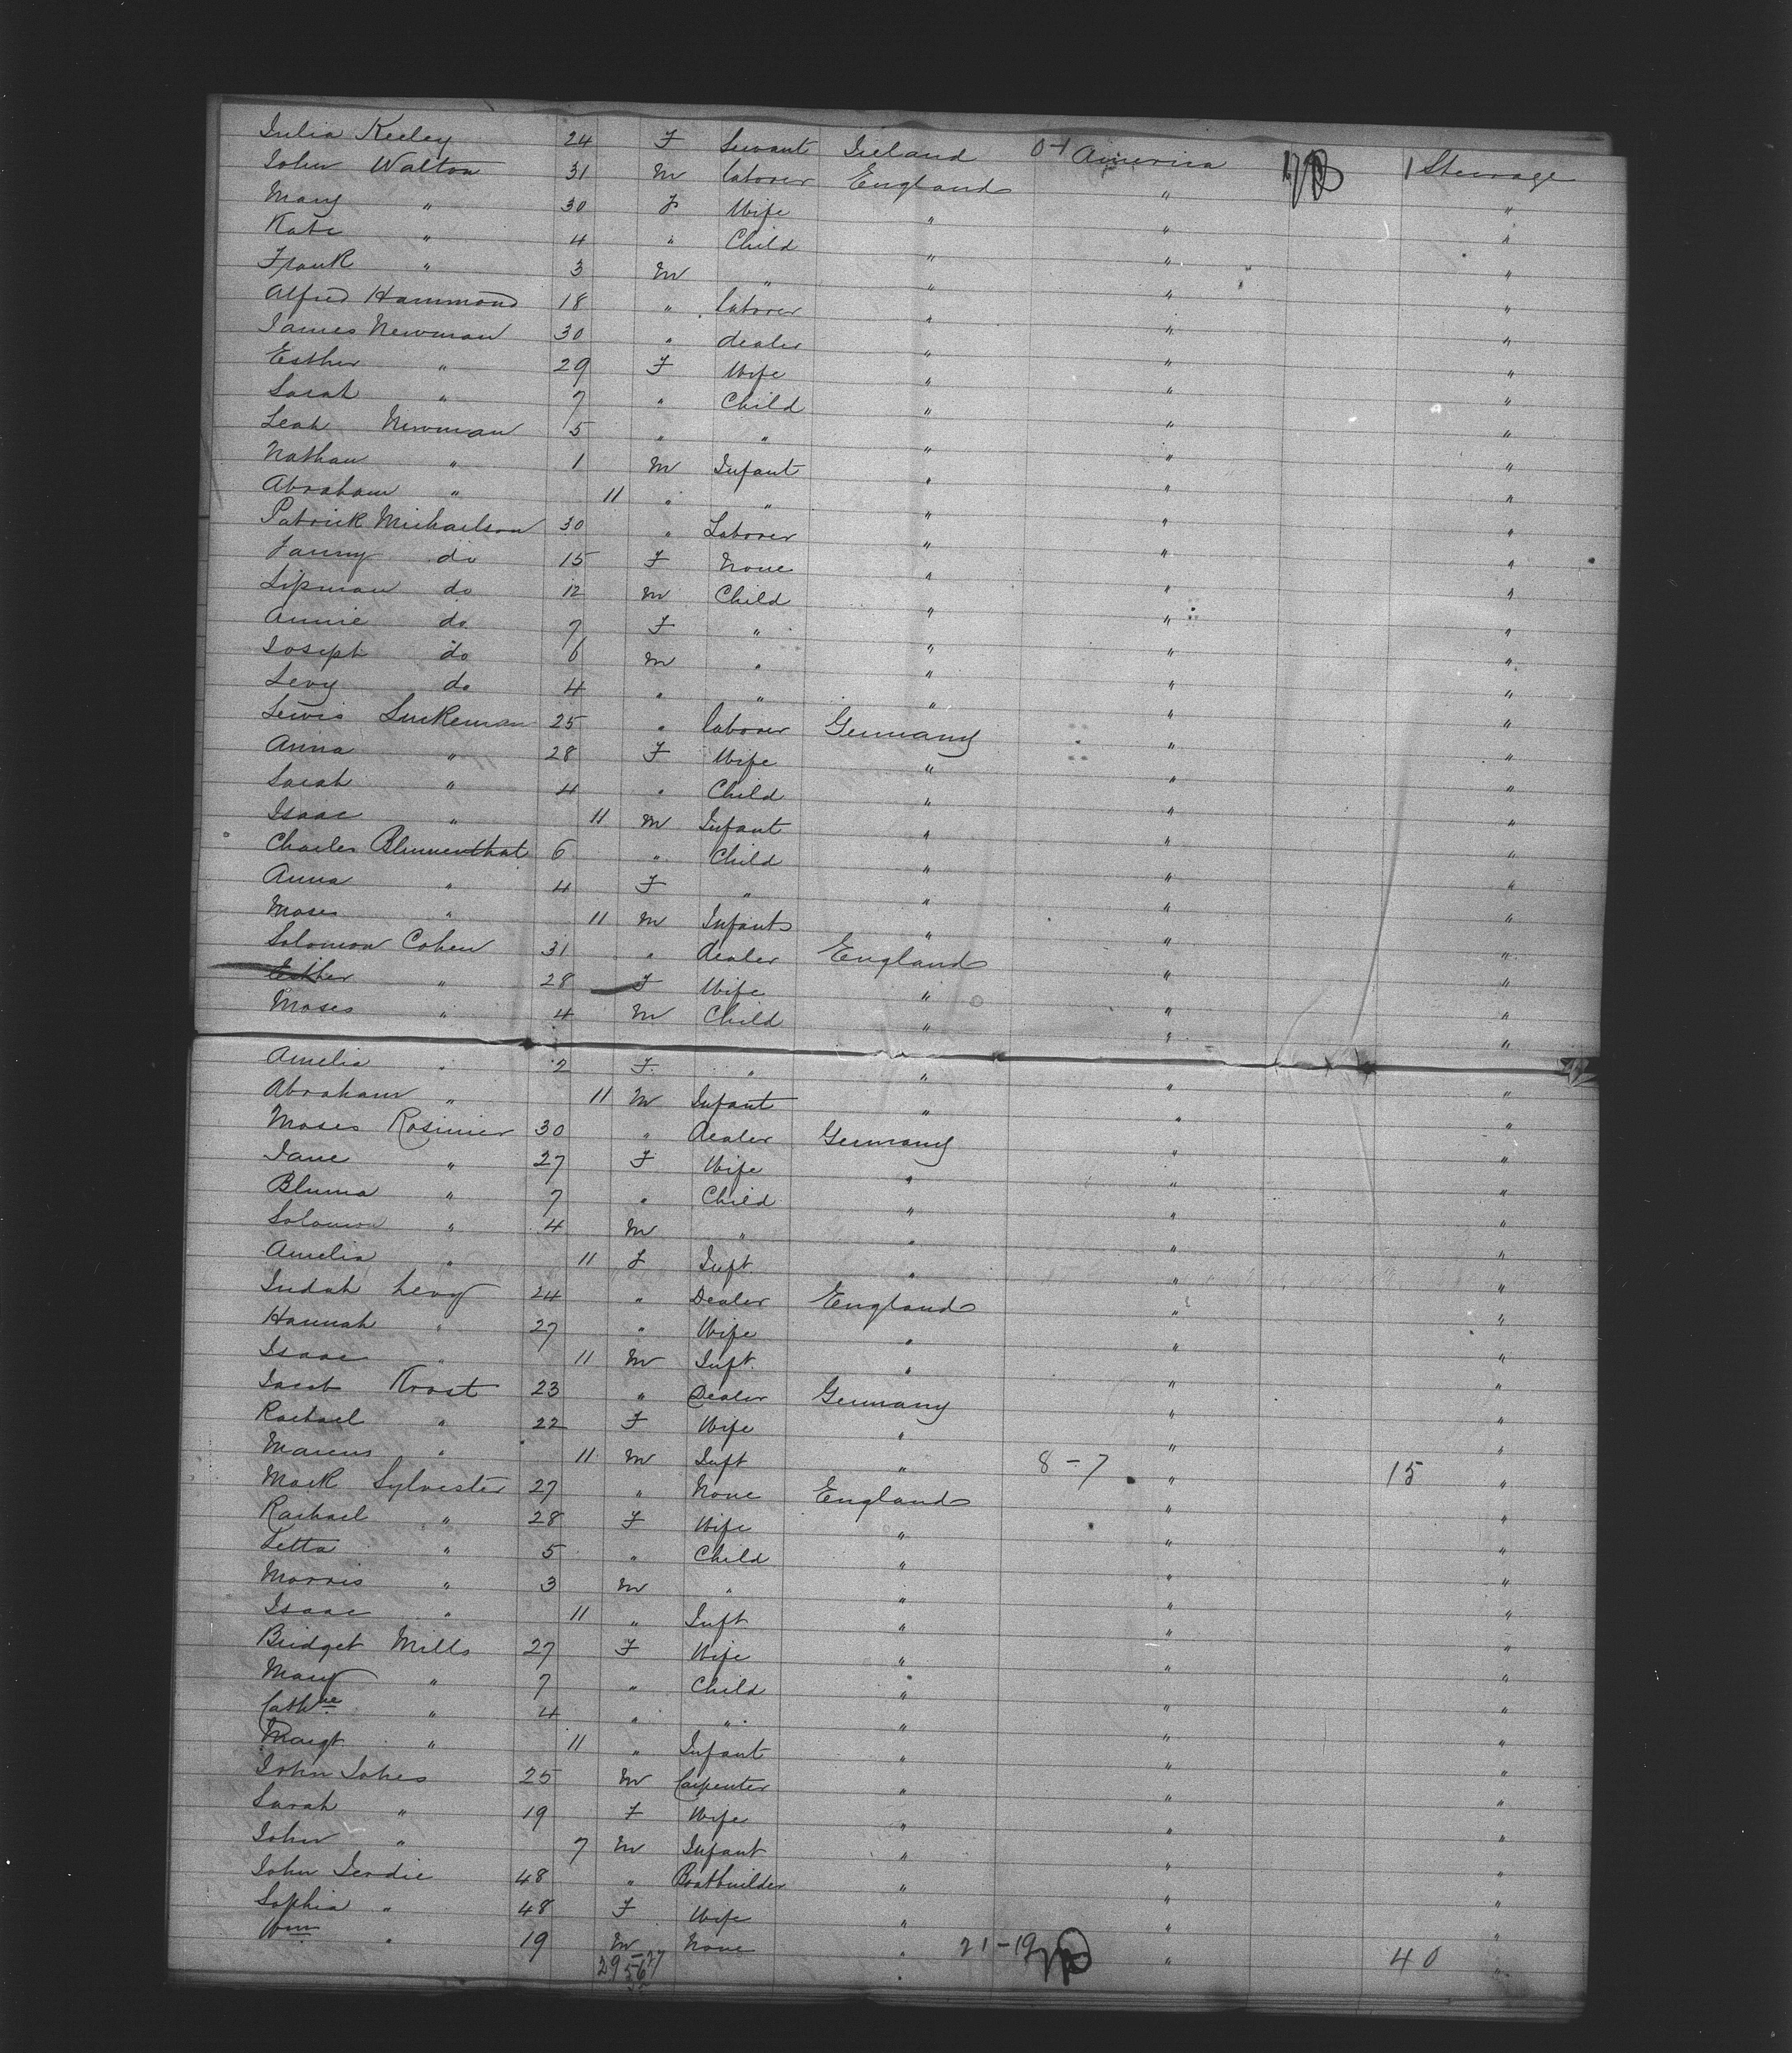 Julia Keeley 24 F Servant Ireland 0-1 America 1 Steerage
John Walton 31 M laborer England " "
Mary " 30 F Wife " " "
Kate " 4 " Child " " "
Frank " 3 M " " " "
Alfred Hammond 18 " laborer " " "
James Newman 30 " dealer " " "
Esther " 29 F Wife " " "
Sarah " 7 " Child " " "
Leah Newman 5 " " " " "
Nathan " 1 M Infant " " "
Abraham " 11 " " " " "
Patrick Michaelson 30 " Laborer " " "
Fanny do 15 F None " " "
Lipman do 12 M Child " " "
Annie do 7 F " " " "
Joseph do 6 M " " " "
Levy do 4 " " " " "
Lewis Luckeman 25 " laborer Germany " "
Anna " 28 F Wife " " "
Sarah " 4 " Child " " "
Isaac " 11 M Infant " " "
Charles Blumenthal 6 " Child " " "
Anna " 4 F " " " "
Moses " 11 M Infants " " "
Solomon Cohen 31 " dealer England " "
Esther " 28 F Wife " " "
Moses " 4 M Child " " "
Amelia " 2 F " " " "
Abraham " 11 M Infant " " "
Moses Rosimer 30 " dealer Germany " "
Jane " 27 F Wife " " "
Bluma " 7 " Child " " "
Solomon " 4 M " " " "
Amelia " 11 F Inft. " " "
Judah Levy 24 " Dealer England " "
Hannah " 27 " Wife " " "
Isaac " 11 M Inft. " " "
Jacob Krost 23 " Dealer Germany " "
Rachael " 22 F Wife " " "
Marcus " 11 M Inft " 8-7 " 15 "
Mark Sylvester 27 " None England " "
Rachael " 28 F Wife " " "
Letta " 5 " Child " " "
Morris " 3 M " " " "
Isaac " 11 " Inft " " "
Bridget Mills 27 F Wife " " "
Mary " 7 " Child " " "
Cathne " 4 " " " " "
Margt. " 11 " Infant " " "
John Johes 25 M Carpenter " " "
Sarah " 19 F Wife " " "
John " 7 M Infant " " "
John 48 " Boatbuilder " " "
Sophia " 48 F Wife " " "
Wm " 19 M None " 21-19 " 40 "
29